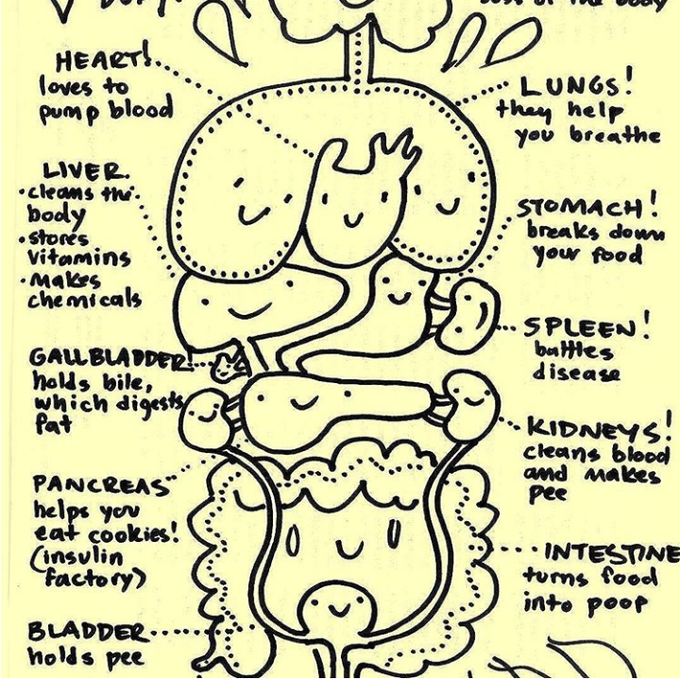 HEART!
loves to
pump blood
LIVER
• cleans the
body
• stores
vitamins
• makes
chemicals
GALLBLADDER!
holds bile,
which digests
fat
PANCREAS
helps you
eat cookies!
(insulin
factory)
BLADDER
holds pee
of the body
LUNGS!
they help
you breathe
STOMACH!
breaks down
your food
SPLEEN!
battles
disease
KIDNEYS!
cleans blood
and makes
pee
INTESTINE
turns food
into poop